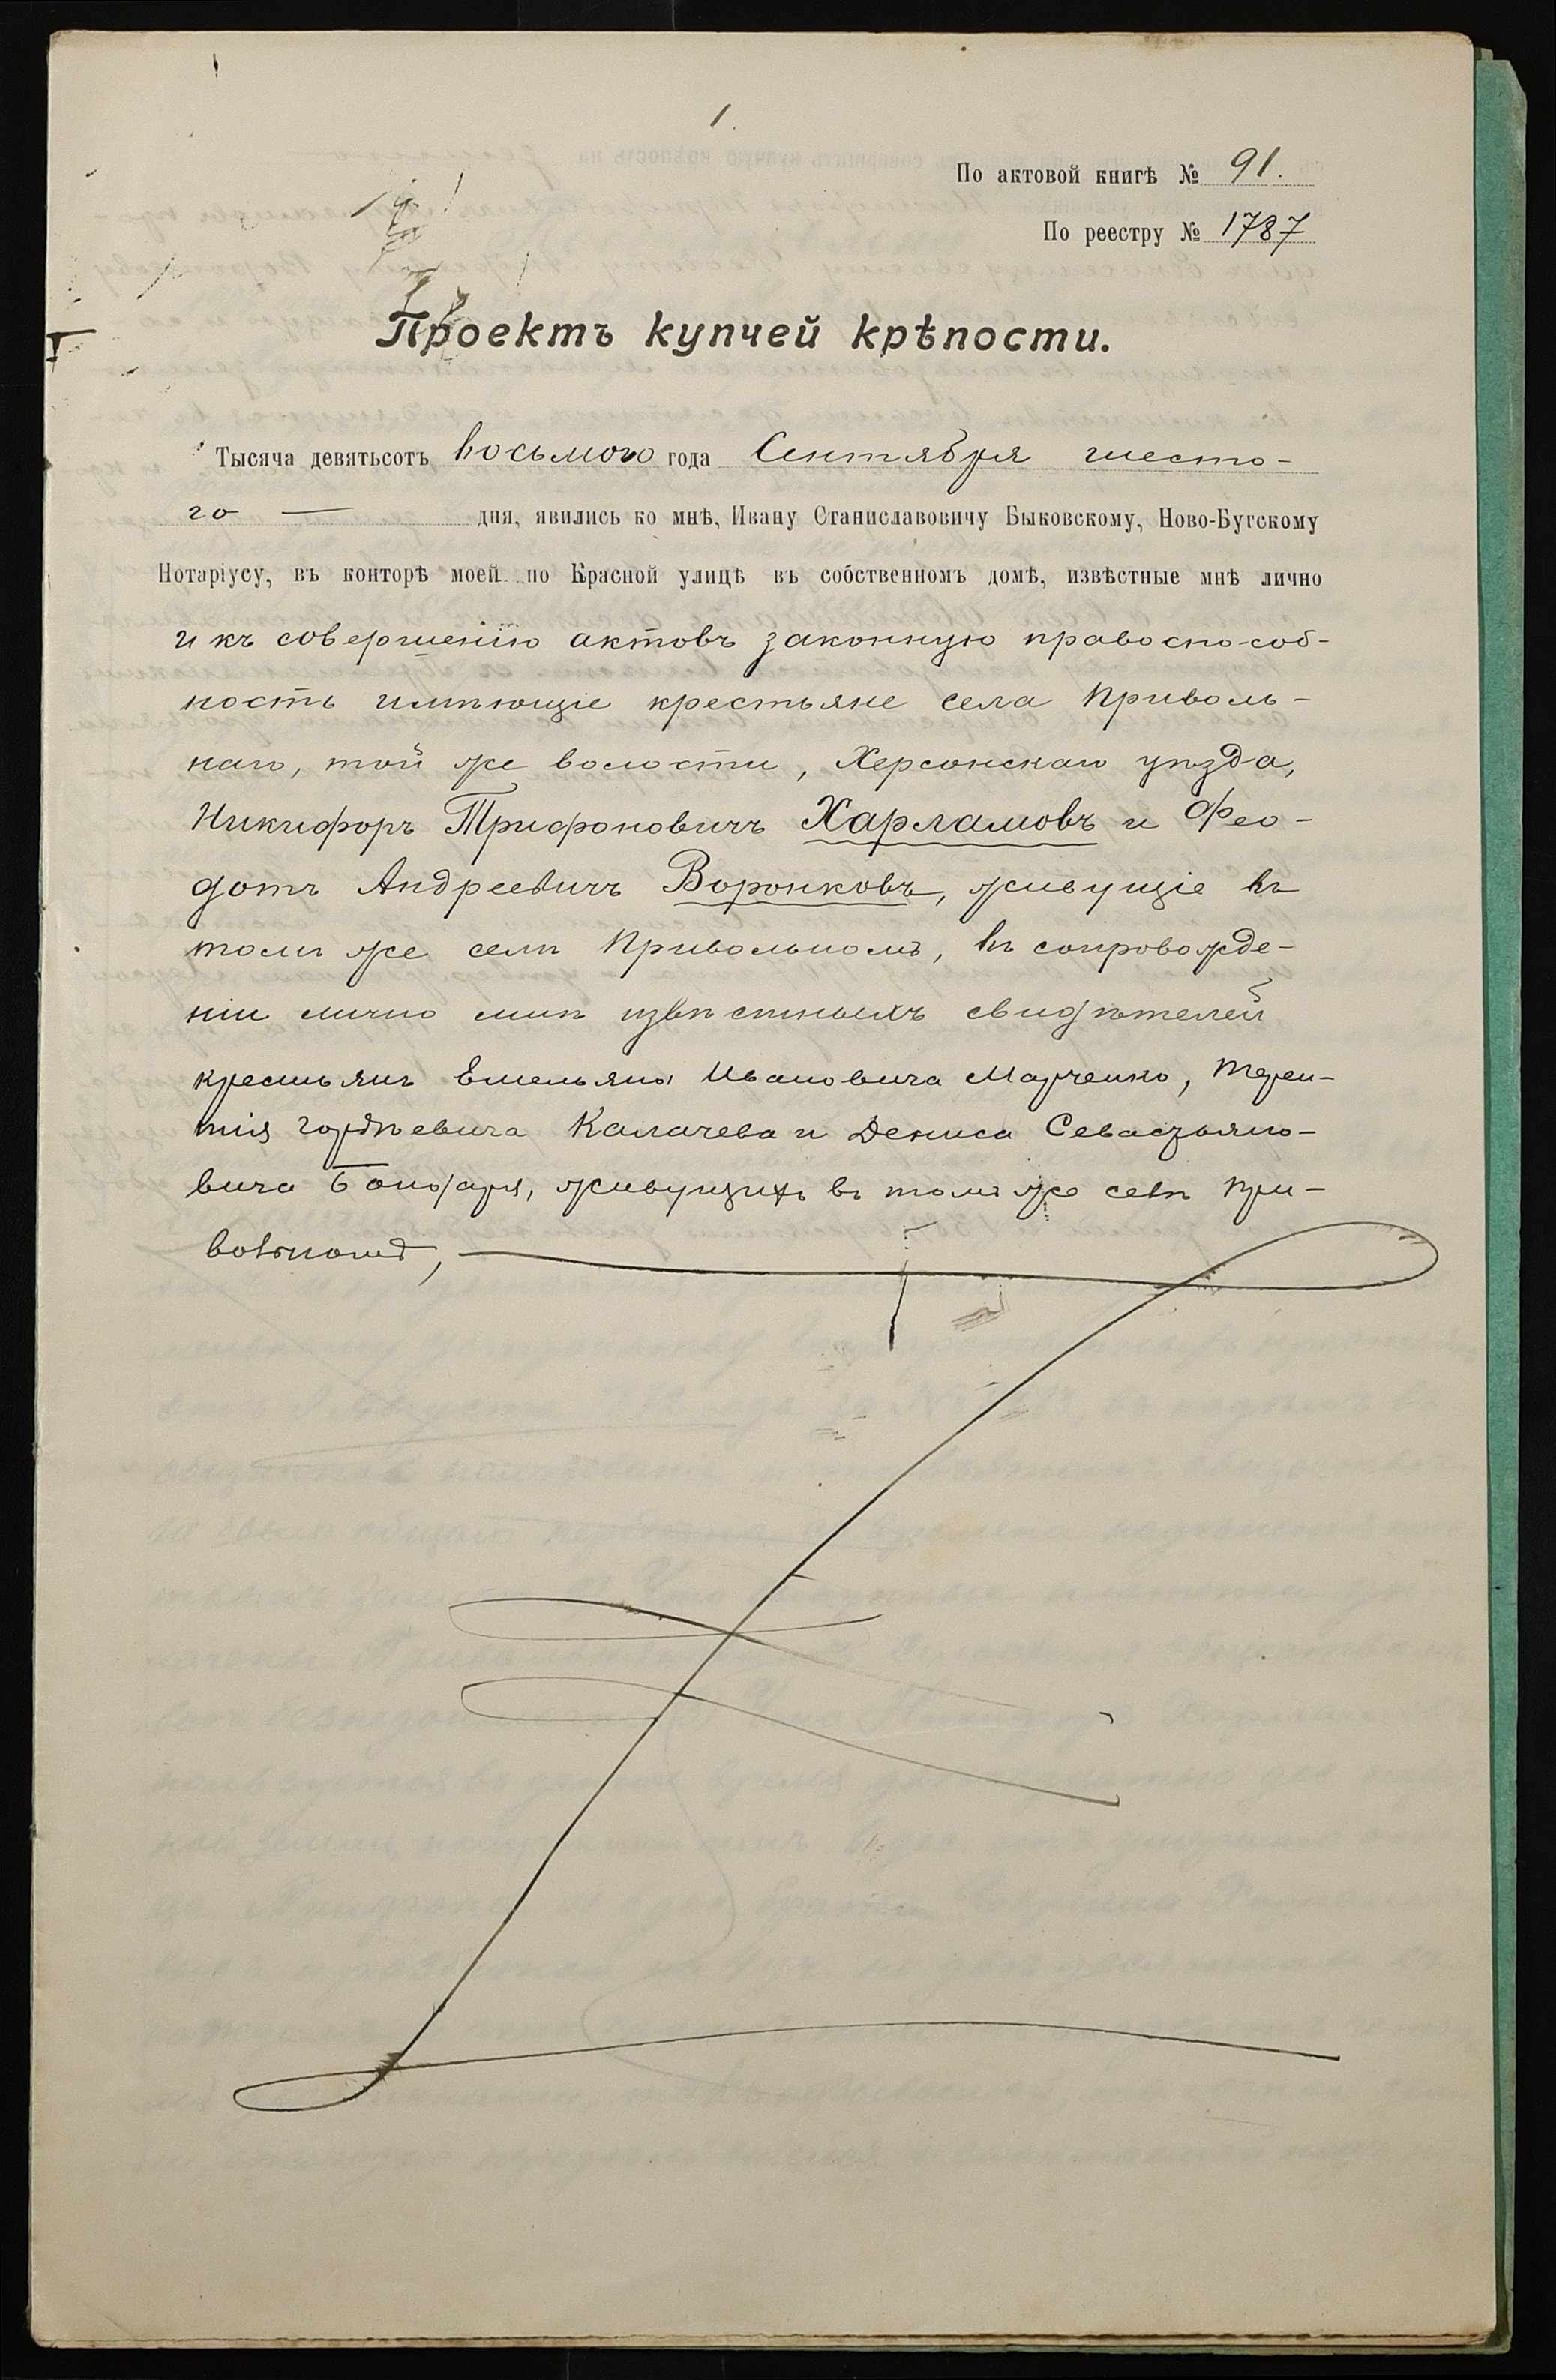 1.
По актовой книгѣ № 91.
По реестру № 1787
Проектъ купчей крѣпости.
Тысяча девятьсотъ восьмого года Сентября шесто-
го — дня, явились ко мнѣ, Ивану Станиславовичу Быковскому, Ново-Бугскому
Нотаріусу, въ конторѣ моей по Красной улицѣ въ собственномъ домѣ, извѣстные мнѣ лично
и къ совершенію актовъ законную правоспособ-
ность имѣющіе крестьяне села Приволь-
наго, той же волости, Херсонскаго уѣзда,
Никифоръ Трифоновичъ Харламовъ и Фео-
дотъ Андреевичъ Воронковъ, живущіе въ
томъ же селѣ Привольномъ, въ сопровожде-
ніи лично мнѣ извѣстныхъ свидѣтелей
крестьянъ Емельяна Ивановича Марченко, Терен-
тія Гордѣевича Калачева и Дениса Севастьяно-
вича Бондаря, живущихъ въ томъ же селѣ При-
вольномъ,